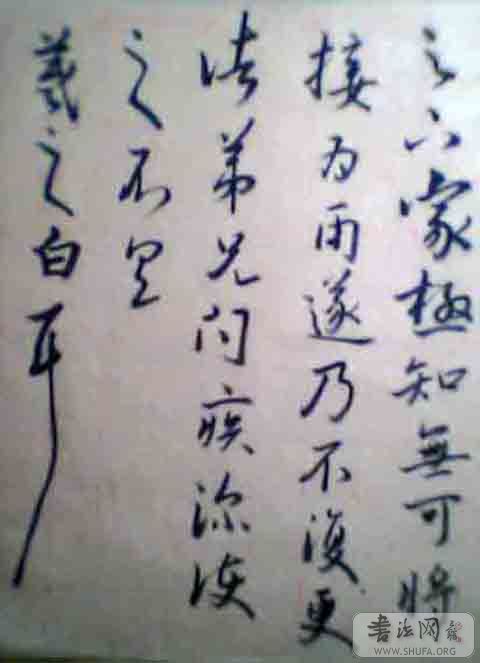 之下家極知無可將
接為雨遂乃不復更
諸弟兄問疾深
之不具
羲之白耳
書法网
WWW.SHUFA.ORG